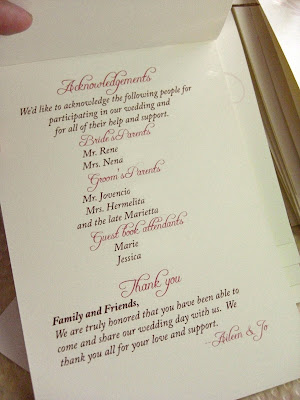 Acknowledgements
We'd like to acknowledge the following people for
participating in our wedding and
for all of their help and support.
Bride's Parents
Mr. Rene
Mrs. Nena
Groom's Parents
Mr. Jovencio
Mrs. Hermelita
and the late Marietta
Guest book attendants
Marie
Jessica
Thank you
Family and Friends,
We are truly honored that you have been able to
come and share our wedding day with us. We
thank you all for your love and support.
--Aileen & Jo